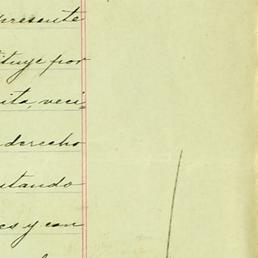 presente
tituye por
ita, veci-
derecho
utando
es y con